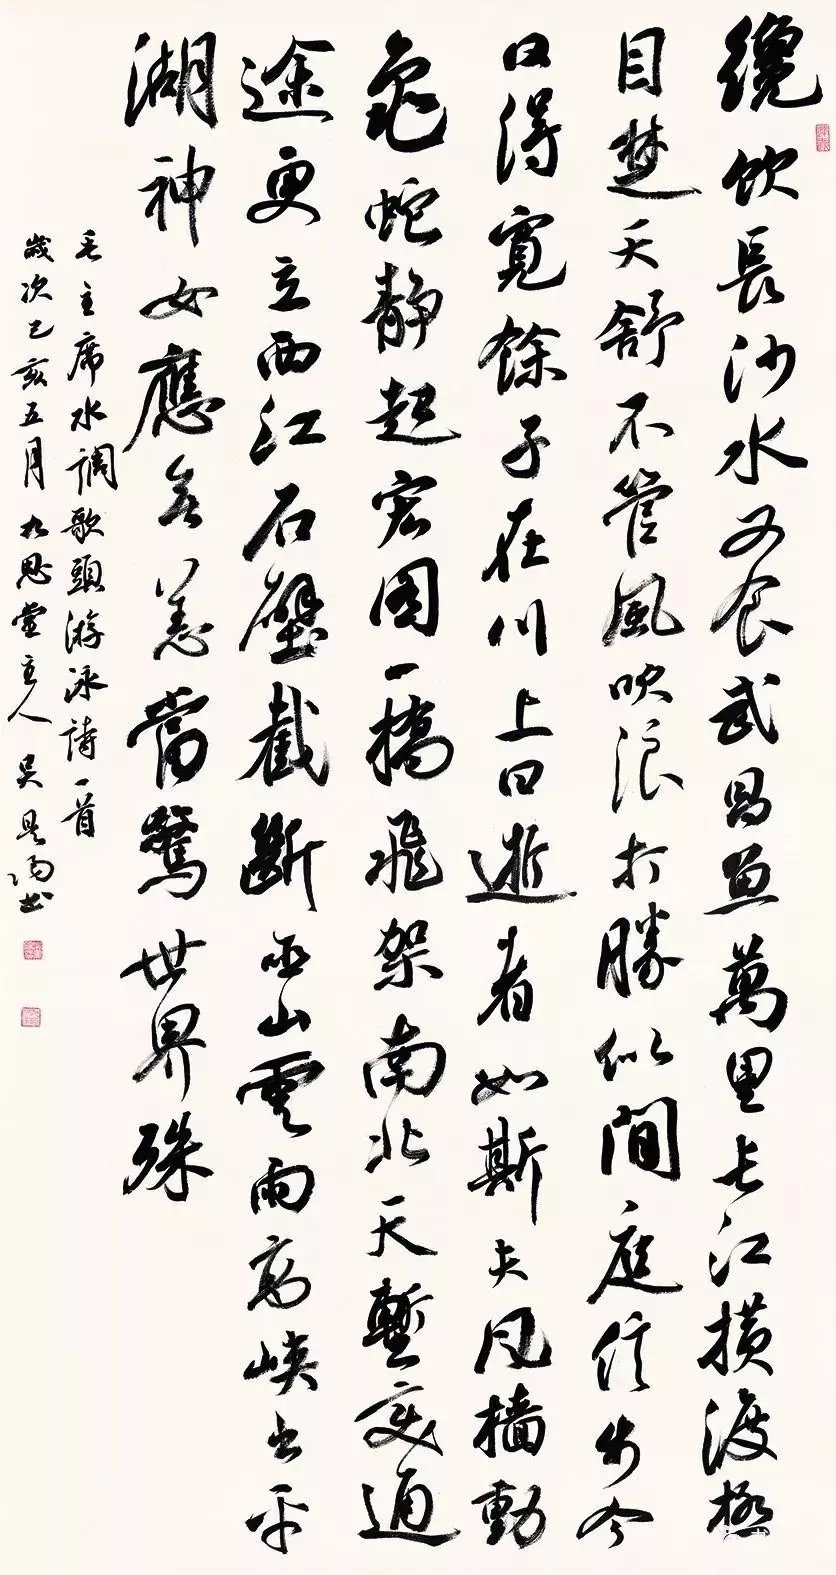 纔飲長沙水又食武昌魚萬里長江橫渡極
目楚天舒不管風吹浪打勝似間庭信步今
日得寬餘子在川上曰逝者如斯夫風檣動
龜蛇靜起宏圖一橋飛架南北天塹變通
途更立西江石壁截斷巫山雲雨高峽出平
湖神女應無恙當驚世界殊
毛主席水調歌頭游泳詩一首
歲次己亥五月九思堂主人吳書